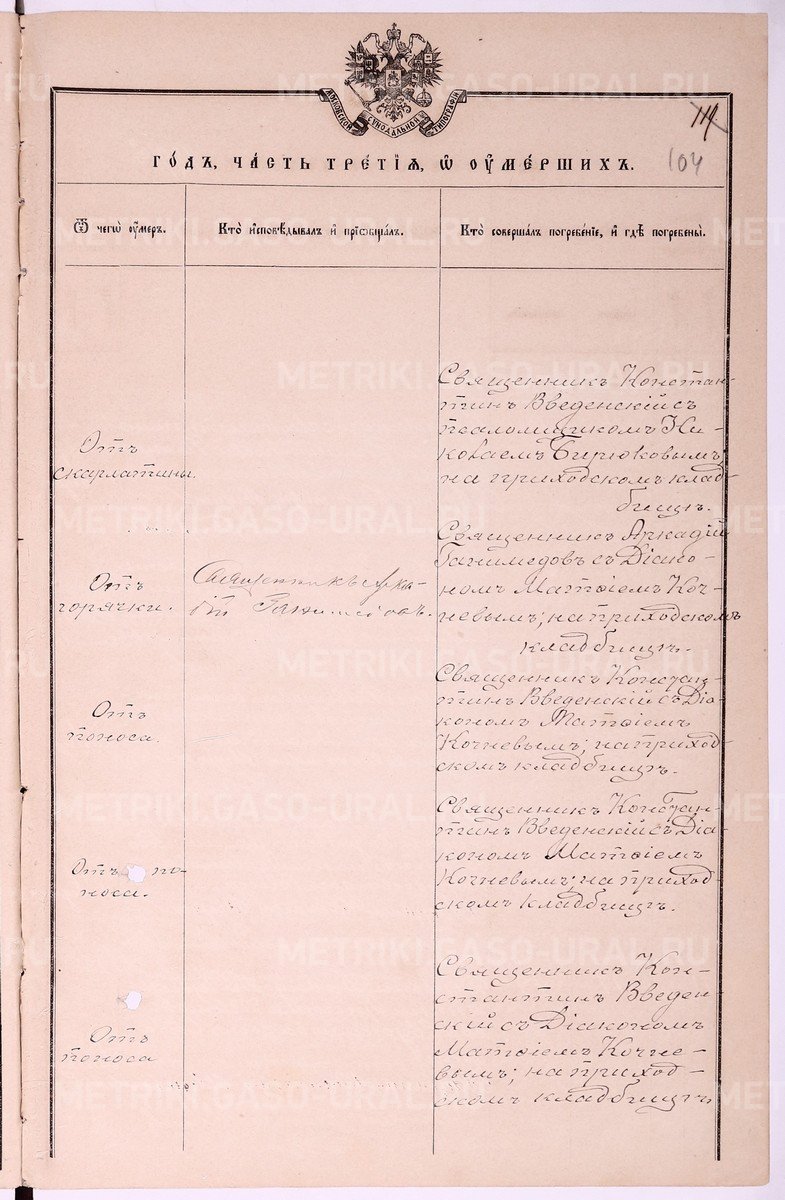 МОСКОВСКОЙ СѴНОДАЛЬНОЙ ТИПОГРАФІИ
114
104
ГОДЪ, ЧАСТЬ ТРЕТІЯ, Ѡ ОУМЕРШИХЪ.
Ѿ чегѡ оумеръ.
Кто исповѣдывалъ и приѡбщалъ.
Кто совершалъ погребеніе, и гдѣ погребены.
Отъ
скарлатины.
Священникъ Констан-
тинъ Введенскій съ
псаломщикомъ Ни-
колаемъ Бирюковымъ
на приходскомъ клад-
бищѣ.
Отъ
горячки.
Священникъ Арка-
дій Ганимедовъ.
Священникъ Аркадій
Ганимедовъ съ Діако-
номъ Матѳіемъ Коч-
невымъ; на приходскомъ
кладбищѣ.
Отъ
поноса.
Священникъ Констан-
тинъ Введенскій съ Діа-
кономъ Матѳіемъ
Кочневымъ; на приход-
скомъ кладбищѣ.
Отъ по-
носа.
Священникъ Констан-
тинъ Введенскій съ Діа-
кономъ Матѳіемъ
Кочневымъ; на приход-
скомъ кладбищѣ.
Отъ
поноса
Священникъ Кон-
стантинъ Введен-
скій съ Діакономъ
Матѳіемъ Кочне-
вымъ; на приход-
скомъ кладбищѣ.
METRIKI.GASO-URAL.RU